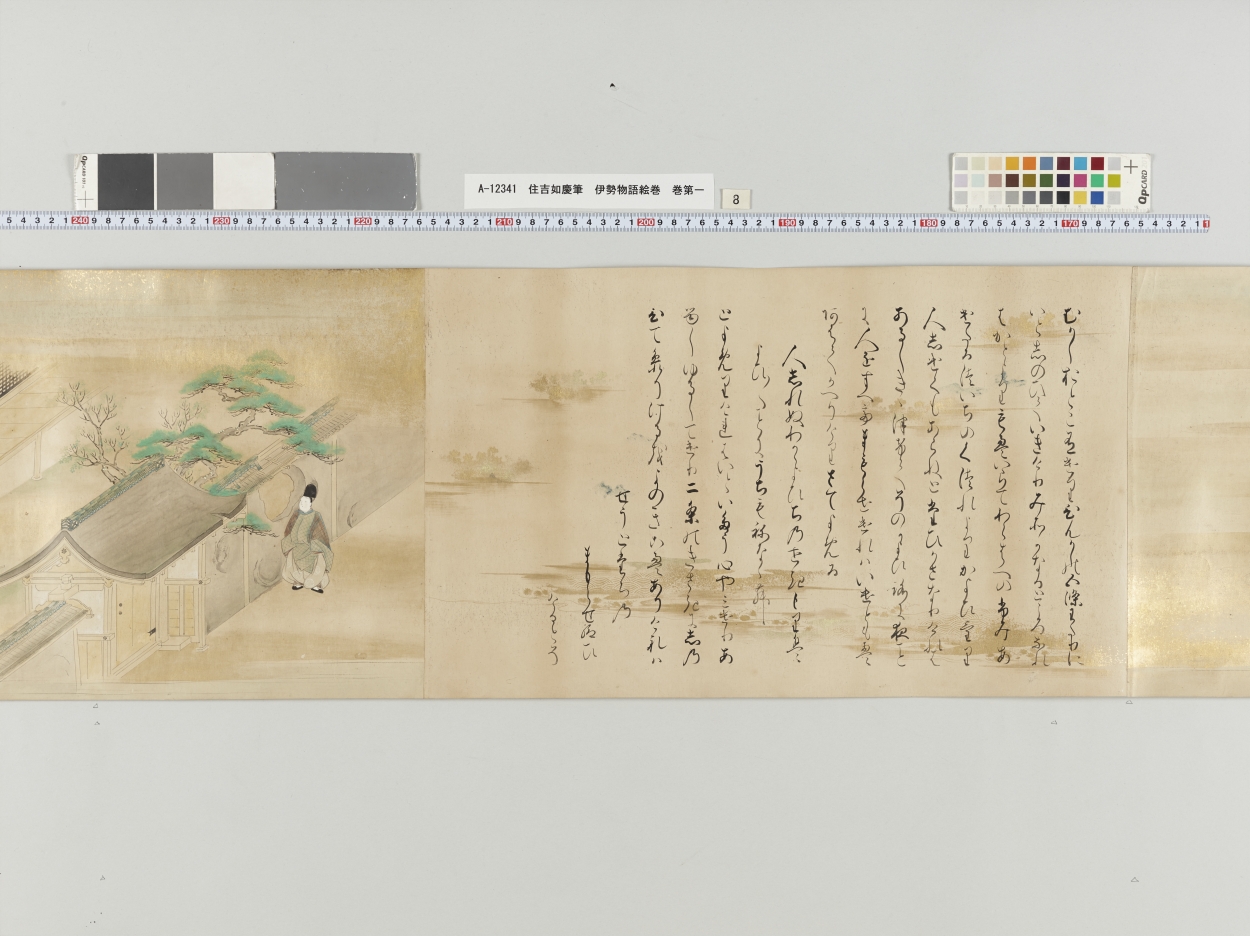 A-12341 住吉如慶筆 伊勢物語絵巻 巻第一
8
QpCARD
240
230
220
210
200
190
180
170
むかしおとこ有けりひんかしの五條わたりに
いと志のひていきけりみそかなるところなれ
はかとよりもえいらてわらはへのふみあ
けたるついちのくつれよりかよひけり
人志けくもあらねとたひかさなりけれは
あるしきゝつけてそのかよひ路に夜こと
に人をすへてまもらせけれはいけともえ
あはてかへりけりさてよめる
人志れぬわかかよひちのせきもりは
よひ〱ことにうちもねなゝむ
とよめりけれはいといたう心やみけりあ
るしゆるしてけり二条のきさきに志の
ひてまいりけるを世のきこえありけれは
せうとたちの
まもらせ給ひ
けるとそ